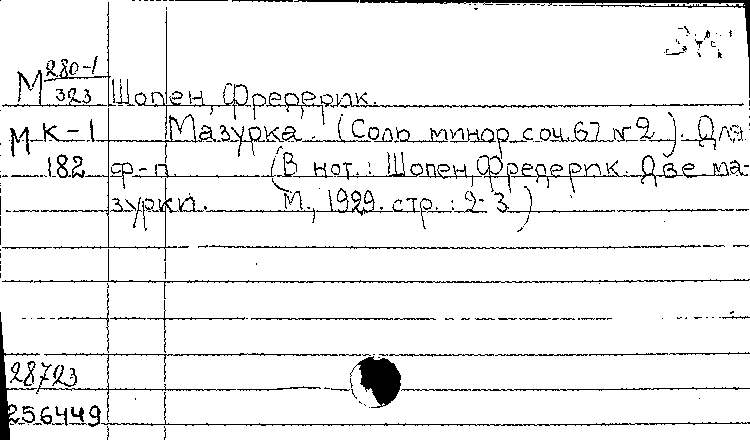 М 280-1
323 Шопен, Фредерик.
М К-1 Мазурка. (Соль минор соч. 67 №2). Для
182 ф-п. (В нот.: Шопен, Фредерик. Две ма-
зурки. М., 1929. стр.: 2-3)
28723
256449